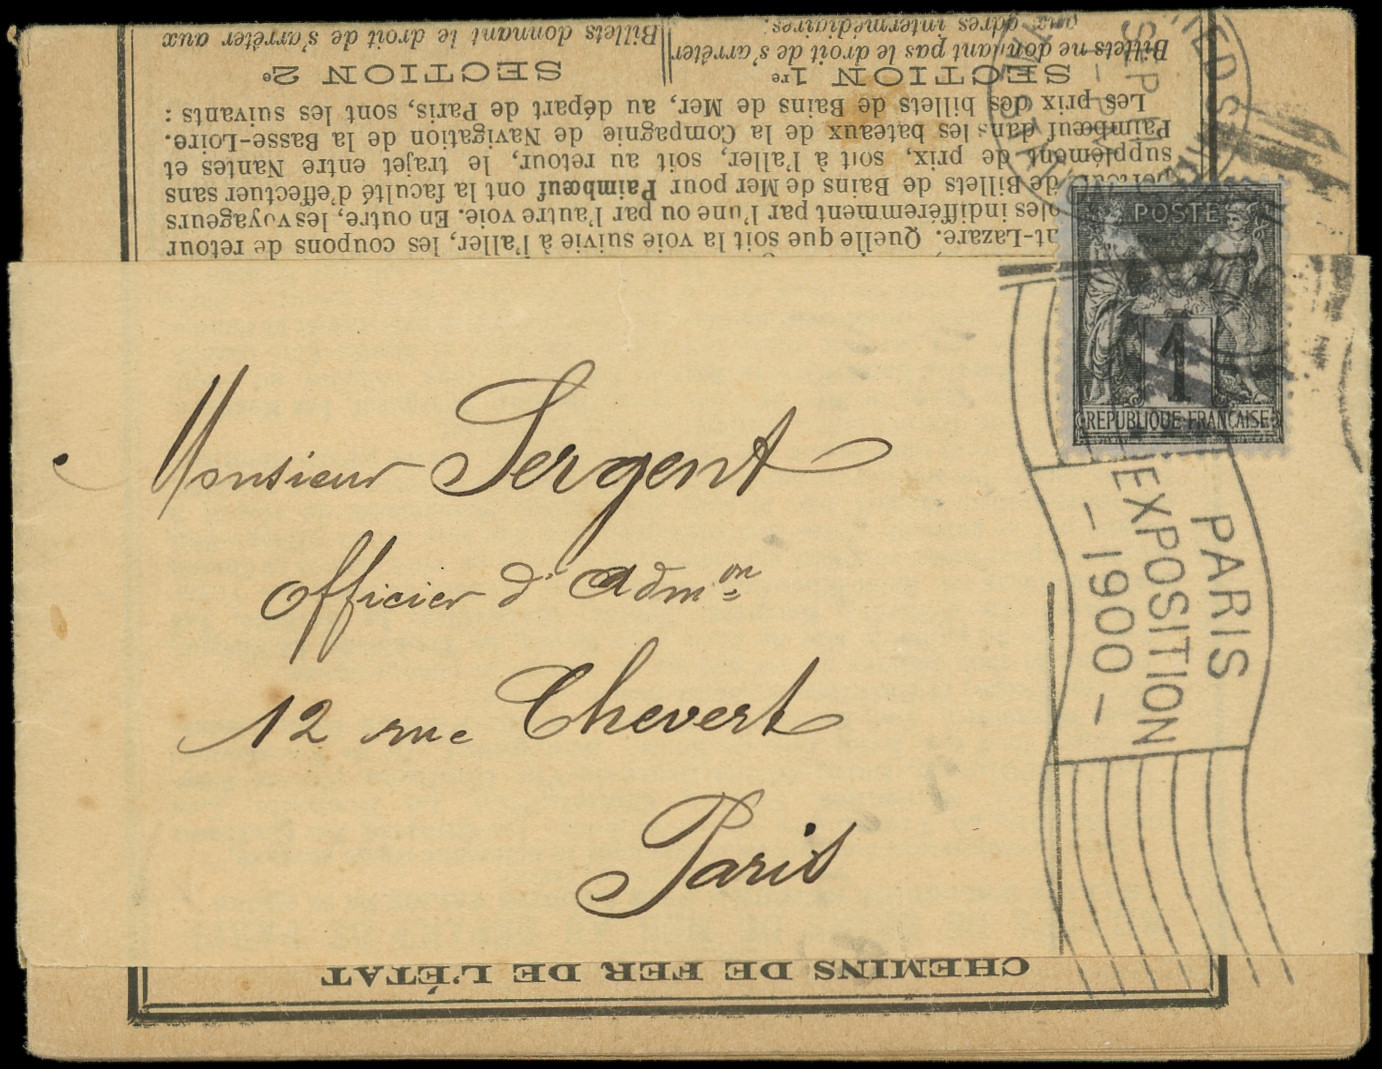 Monsieur Sergent
Officier d'Adm.on
12 rue Chevert
Paris
POSTE
1
REPUBLIQUE FRANÇAISE
PARIS
EXPOSITION
- 1900 -
CHEMINS DE FER DE L'ÉTAT
-Lazare. Quelle que soit la voie suivie à l'aller, les coupons de retour
indifféremment par l'une ou par l'autre voie. En outre, les voyageurs
de Billets de Bains de Mer pour Paimbœuf ont la faculté d'effectuer sans
supplément de prix, soit à l'aller, soit au retour, le trajet entre Nantes et
Paimbœuf dans les bateaux de la Compagnie de Navigation de la Basse-Loire.
Les prix des billets de Bains de Mer, au départ de Paris, sont les suivants :
SECTION 1re
Billets ne donnant pas le droit de s'arrêter
aux gares intermédiaires.
SECTION 2e
Billets donnant le droit de s'arrêter aux